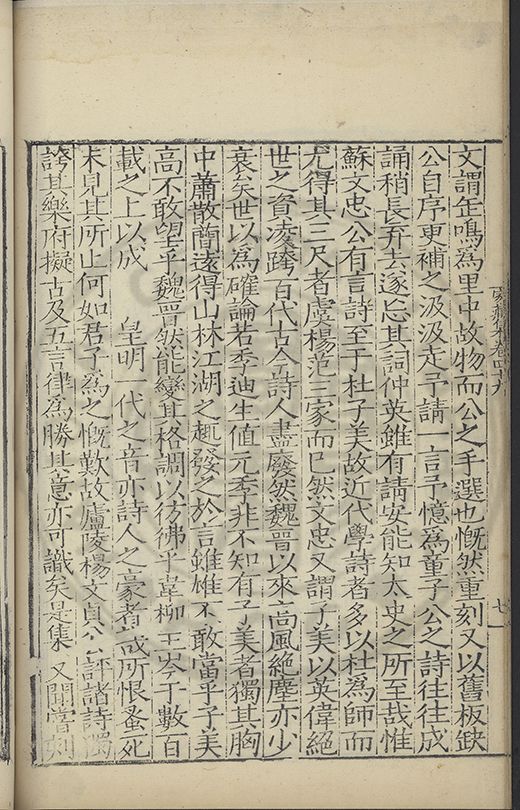 文謂缶鳴爲里中故物而公之手選也慨然重刻又以舊板缺
公自序更補之汲汲走予請一言予憶爲童子公之詩往往成
誦稍長弃去遂忘其詞仲英雖有請安能知太史之所至哉惟
蘇文忠公有言詩至于杜子美故近代學詩者多以杜爲師而
尤得其三尺者虞楊范三家而已然文忠又謂子美以英偉絕
世之資凌跨百代古今詩人盡廢然魏晉以來高風絕塵亦少
衰矣世以爲確論若季迪生值元季非不知有子美者獨其胸
中蕭散簡遠得山林江湖之趣發之於言雖雄不敢當乎子美
高不敢望乎魏晉然能變其格調以彷彿乎韋柳王岑于數百
載之上以成　皇明一代之音亦詩人之豪者哉所恨蚤死
未見其所止何如君子爲之慨歎故廬陵楊文貞公評諸詩獨
誇其樂府擬古及五言律爲勝其意亦可識矣是集　又聞嘗刻
卷四十九
七